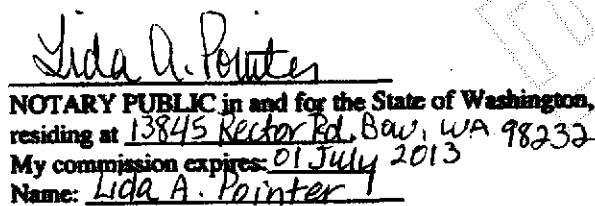 Lida A. Pointer
NOTARY PUBLIC in and for the State of Washington,
residing at 13845 Rector Rd, Bow, WA 98232
My commission expires: 01 July 2013
Name: Lida A. Pointer